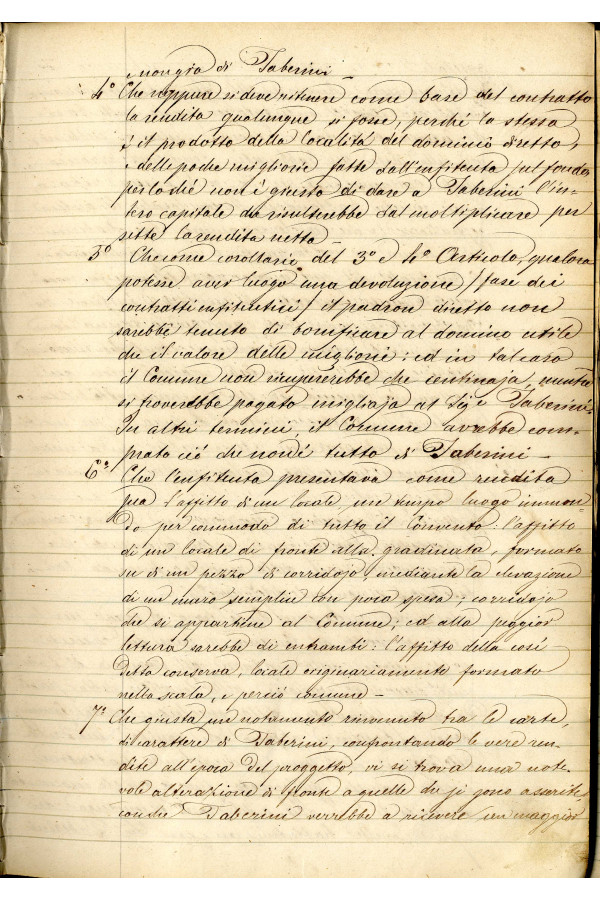 mongia di Taberini —
4° Che neppure si deve ritenere come base del contratto
la rendita qualunque si fosse, perché la stessa
é il prodotto della località del dominio diretto,
e delle poche migliorie fatte dall'enfiteuta sul fondo;
perloché non é giusto di dare a Taberini l'in-
tero capitale che risulterebbe dal moltiplicare per
sette la rendita netta —
5° Che come corollario del 3° e 4° Articolo, qualora
potesse aver luogo una devoluzione / fase dei
contratti enfiteutici / il padron diretto non
sarebbe tenuto di bonificare al domino utile
che il valore delle migliorie; ed in tal caso
il Comune non ricupererebbe che centinaja, mentre
si troverebbe pagato migliaja al Sig.e Taberini.
In altri termini, il Comune avrebbe com-
prato ció che non é tutto di Taberini —
6° Che l'enfiteuta presentava come rendita
l'affitto di un locale un tempo luogo immon-
do per commodo di tutto il Convento: l'affitto
di un locale di fronte alla gradinata, formato
su di un pezzo di corridojo mediante la elevazione
di un muro semplice con poca spesa; corridojo
che si appartiene al Comune; ed alla peggior
lettura sarebbe di entrambi: l'affitto della cosí
detta conserva, locale originariamente formato
nella scala, e perció comune —
7° Che giusta un notamento rinvenuto tra le carte,
di carattere di Taberini, confrontando le vere ren-
dite all'epoca del proggetto, vi si trova una note-
vole alterazione di fronte a quelle che si sono asserite,
Taberini verrebbe a ricevere un maggior